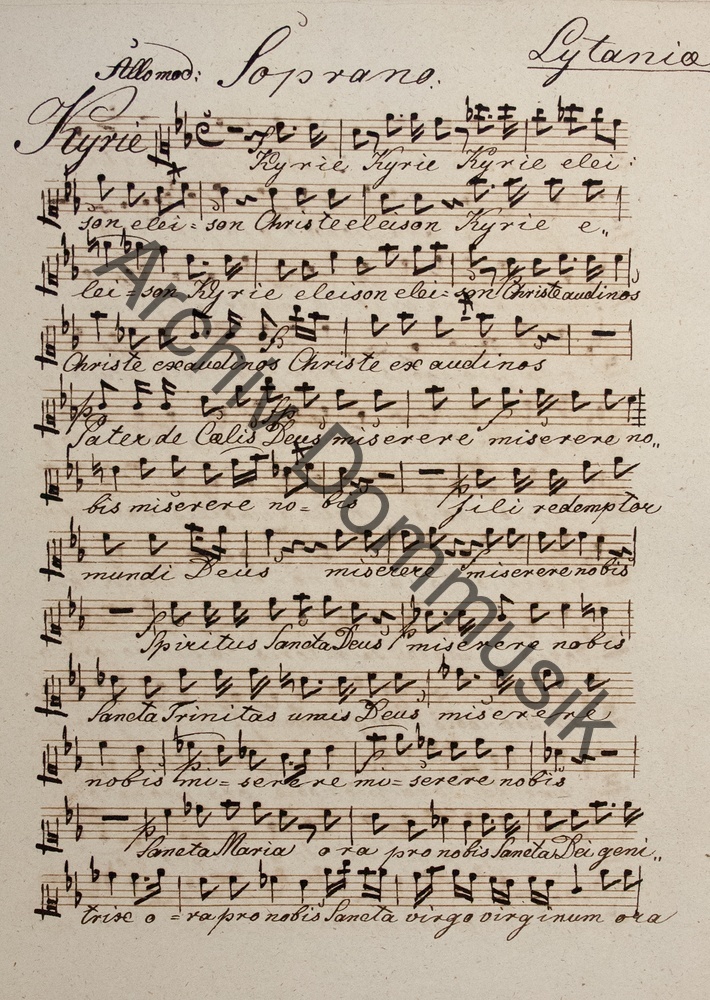 Lytaniæ
Allo mod: Soprano.
Kyrie
Kyrie Kyrie Kyrie elei:
son elei = son Christe eleison Kyrie e„
lei = son Kyrie eleison elei = son Christe audi nos
Christe exaudi nos Christe exaudi nos
Pater de Cœlis Deus miserere miserere no„
bis miserere no = bis fili redemptor
mundi Deus miserere miserere nobis
Spiritus Sancta Deus miserere nobis
Sancta Trinitas unus Deus miserere
nobis mi = serere mi = serere nobis
Sancta Maria ora pro nobis Sancta Dei geni„
trix o = ra pro nobis Sancta virgo virginum ora
Archiv Dommusik